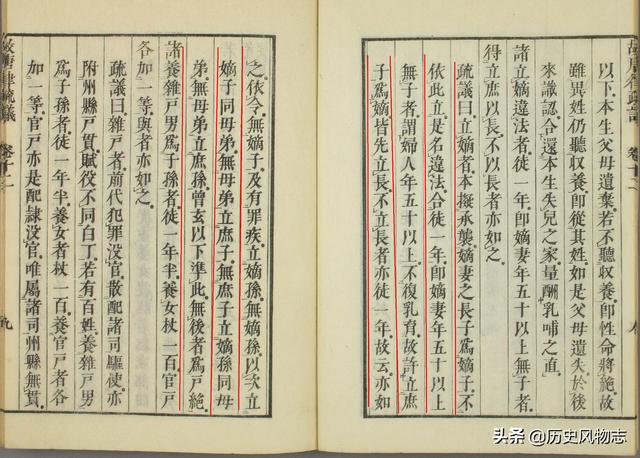 故唐律疏議 卷十二 八
以下本生父母遺棄若不聽収養即性命將絶故
雖異姓仍聽収養即從其姓如是父母遺失於後
來識認合還本生失兒之家量酬乳哺之直
諸立嫡違法者徒一年即嫡妻年五十以上無子者
得立庶以長不以長者亦如之
疏議曰立嫡者本擬承襲嫡妻之長子爲嫡子不
依此立是名違法合徒一年即嫡妻年五十以上
無子者謂婦人年五十以上不復乳育故許立庶
子爲嫡皆先立長不立長者亦徒一年故云亦如
之依令無嫡子及有罪疾立嫡孫無嫡孫以次立
嫡子同母弟無母弟立庶子無庶子立嫡孫同母
弟無母弟立庶孫曾玄以下準此無後者爲戸絶
諸養雜戸男爲子孫者徒一年半養女杖一百官戸
各加一等與者亦如之
疏議曰雜戸者前代犯罪沒官散配諸司驅使亦
附州縣戸貫賦役不同白丁若有百姓養雜戸男
爲子孫者徒一年半養女者杖一百養官戸者各
加一等官戸亦是配隸沒官唯屬諸司州縣無貫
故唐律疏議 卷十二 九
头条 @历史风物志